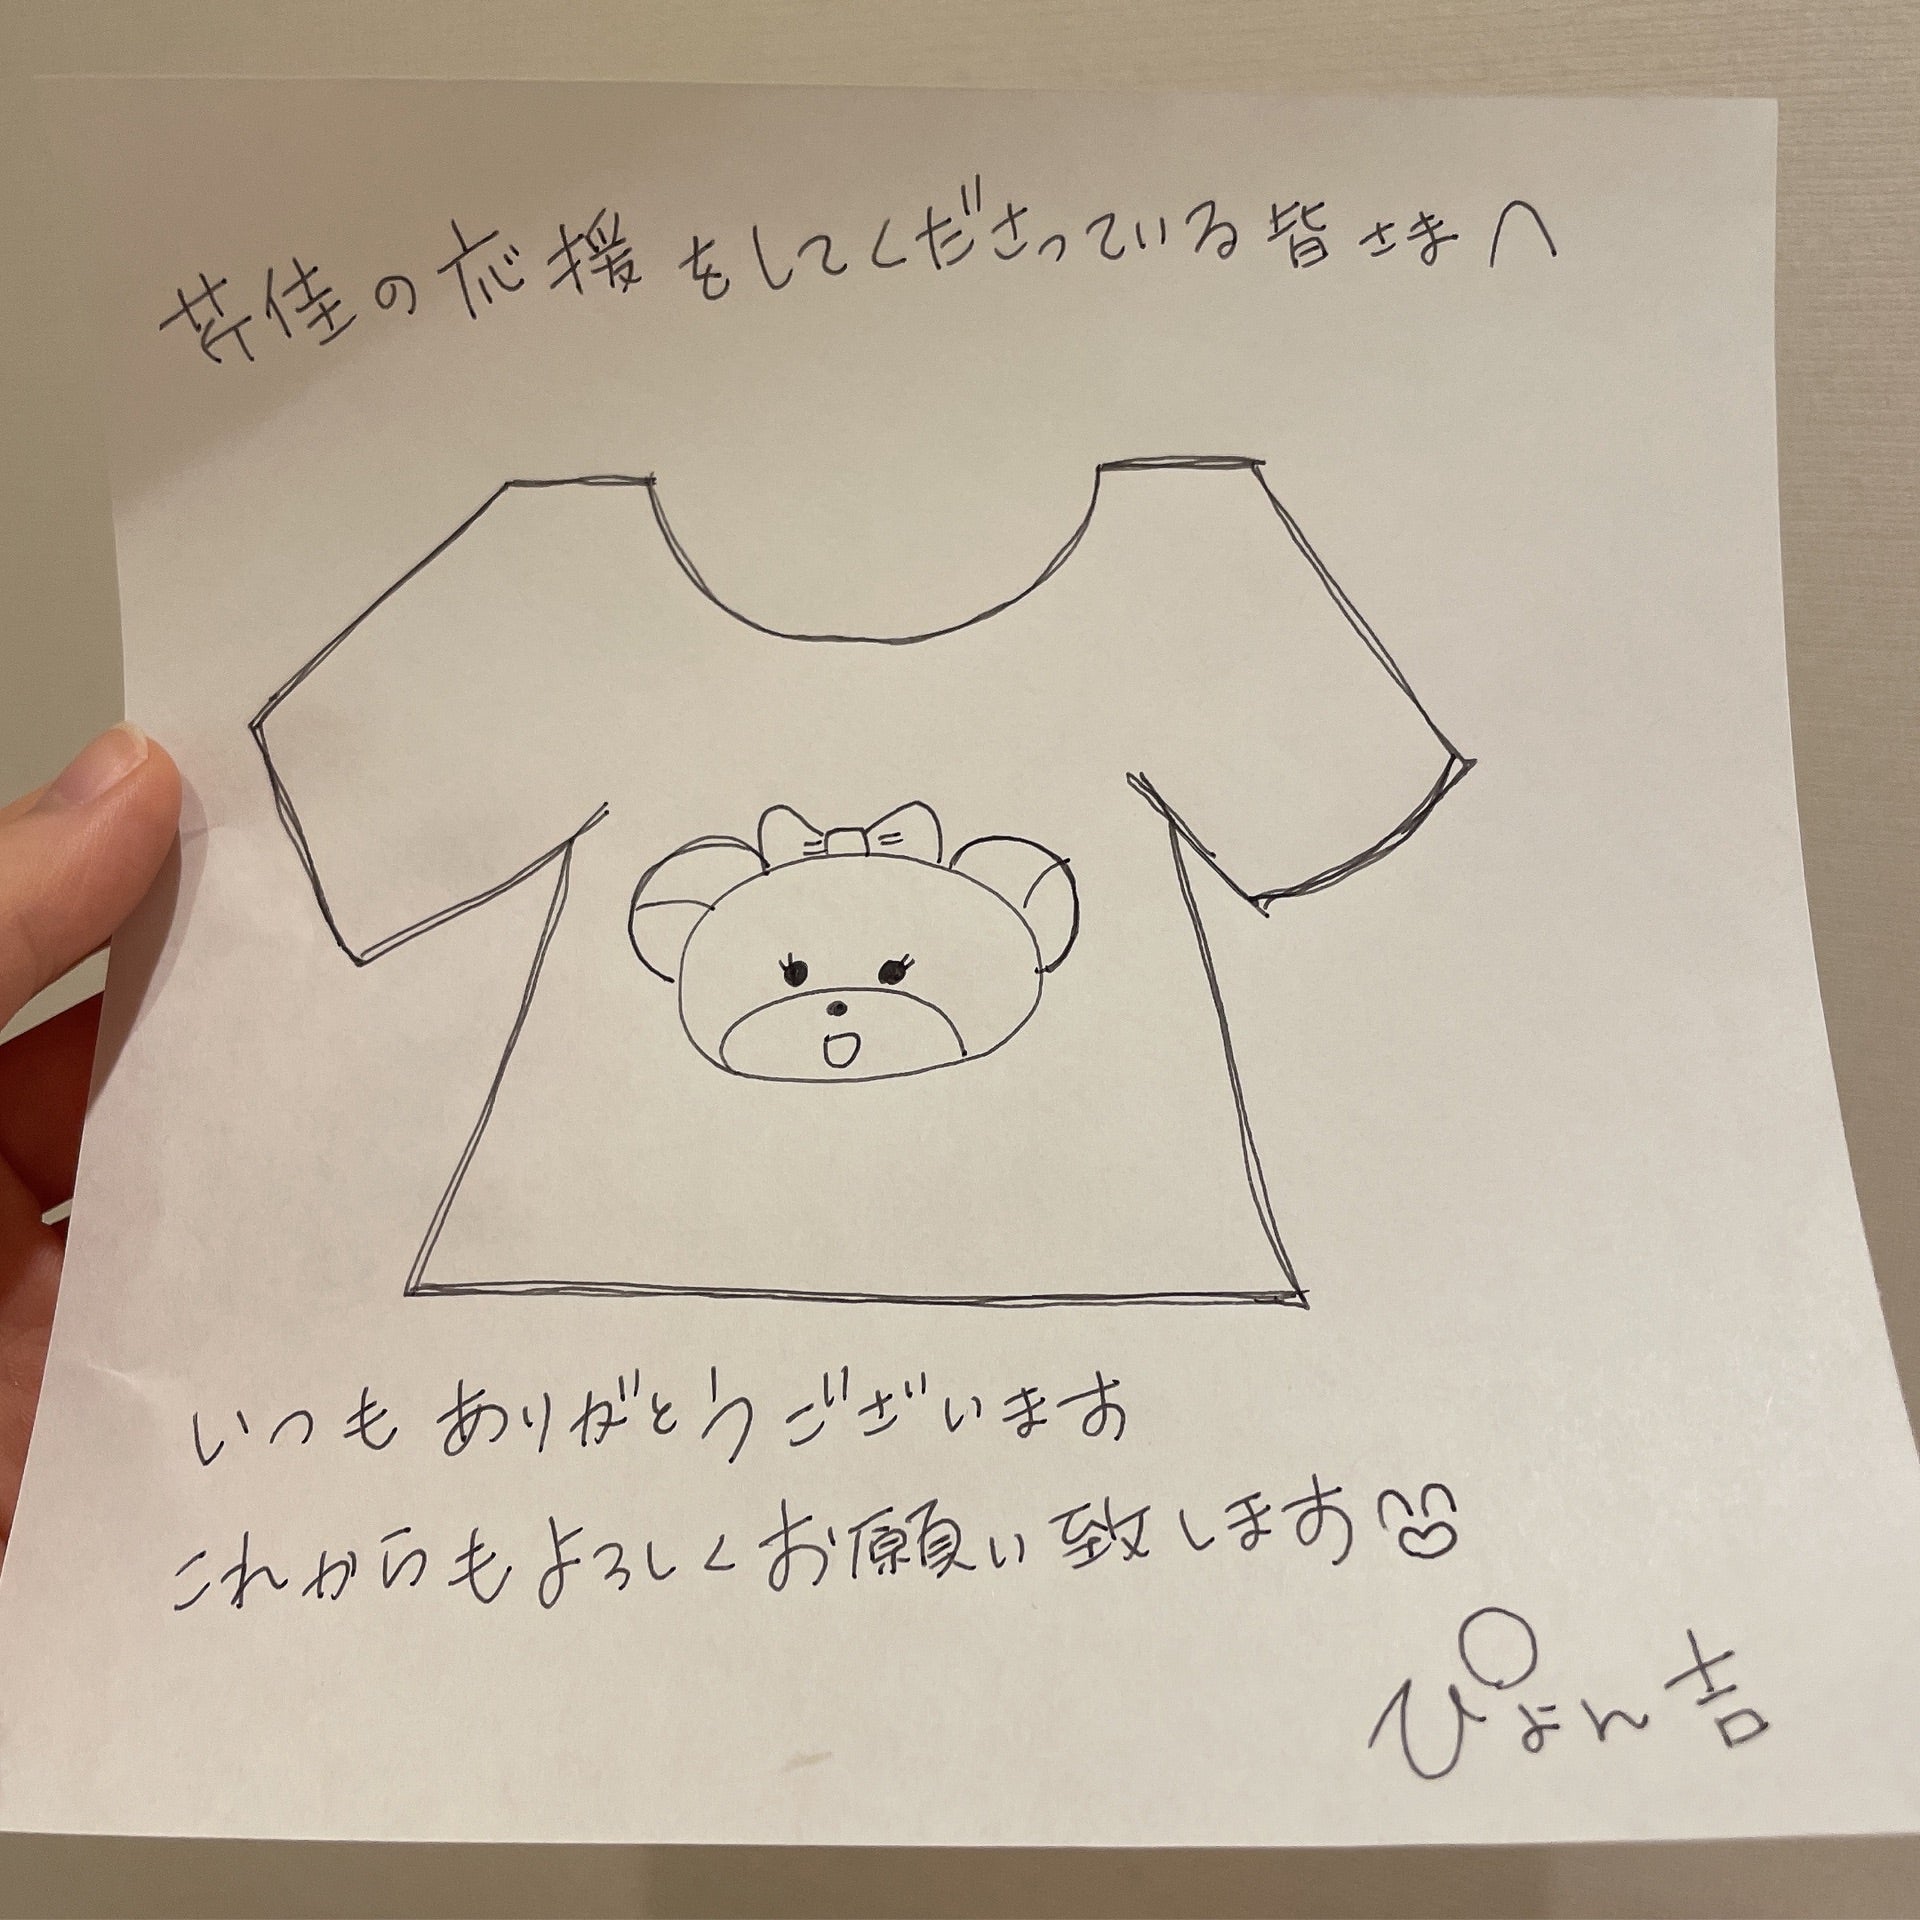 芹佳の応援をしてくださっている皆さまへ
いつもありがとうございます
これからもよろしくお願い致します
ぴょん吉